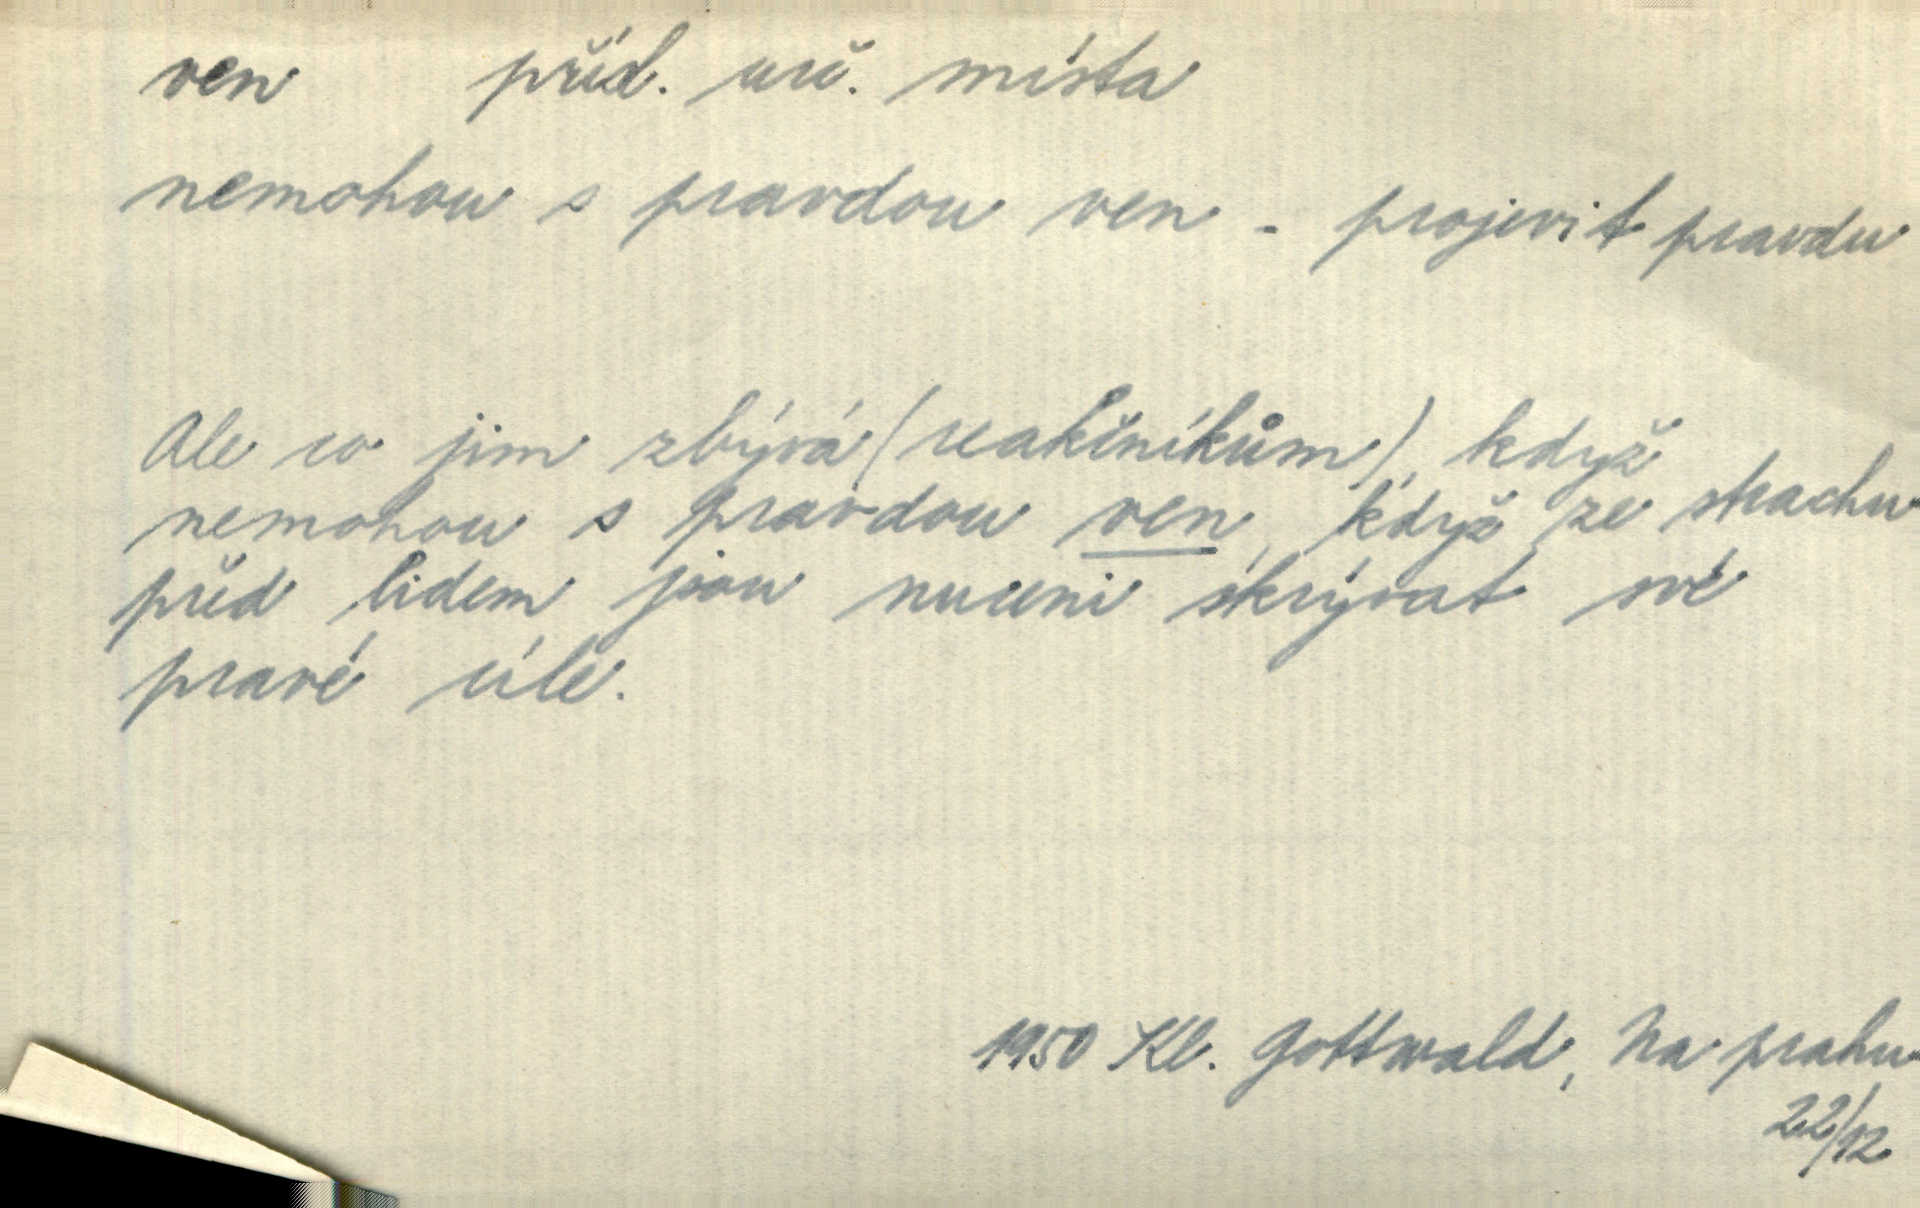 ven příd. urč. místa
nemohou s pravdou ven - projevit pravdu
Ale co jim zbývá (reakčníkům), když
nemohou s pravdou ven, když ze strachu
před lidem jsou nuceni skrývat své
pravé cíle.
1950 Kl. Gottwald, Na prahu
22/12